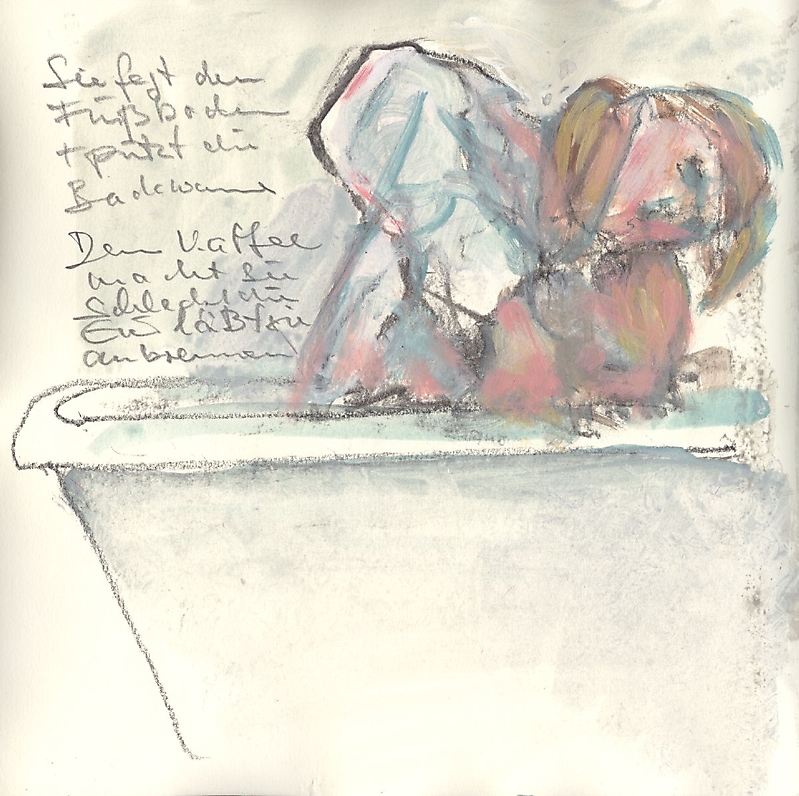 Sie fegt den
Fußboden
+ putzt die
Badewanne
Den Kaffee
macht sie
schlecht die
Eier läßt sie
anbrennen